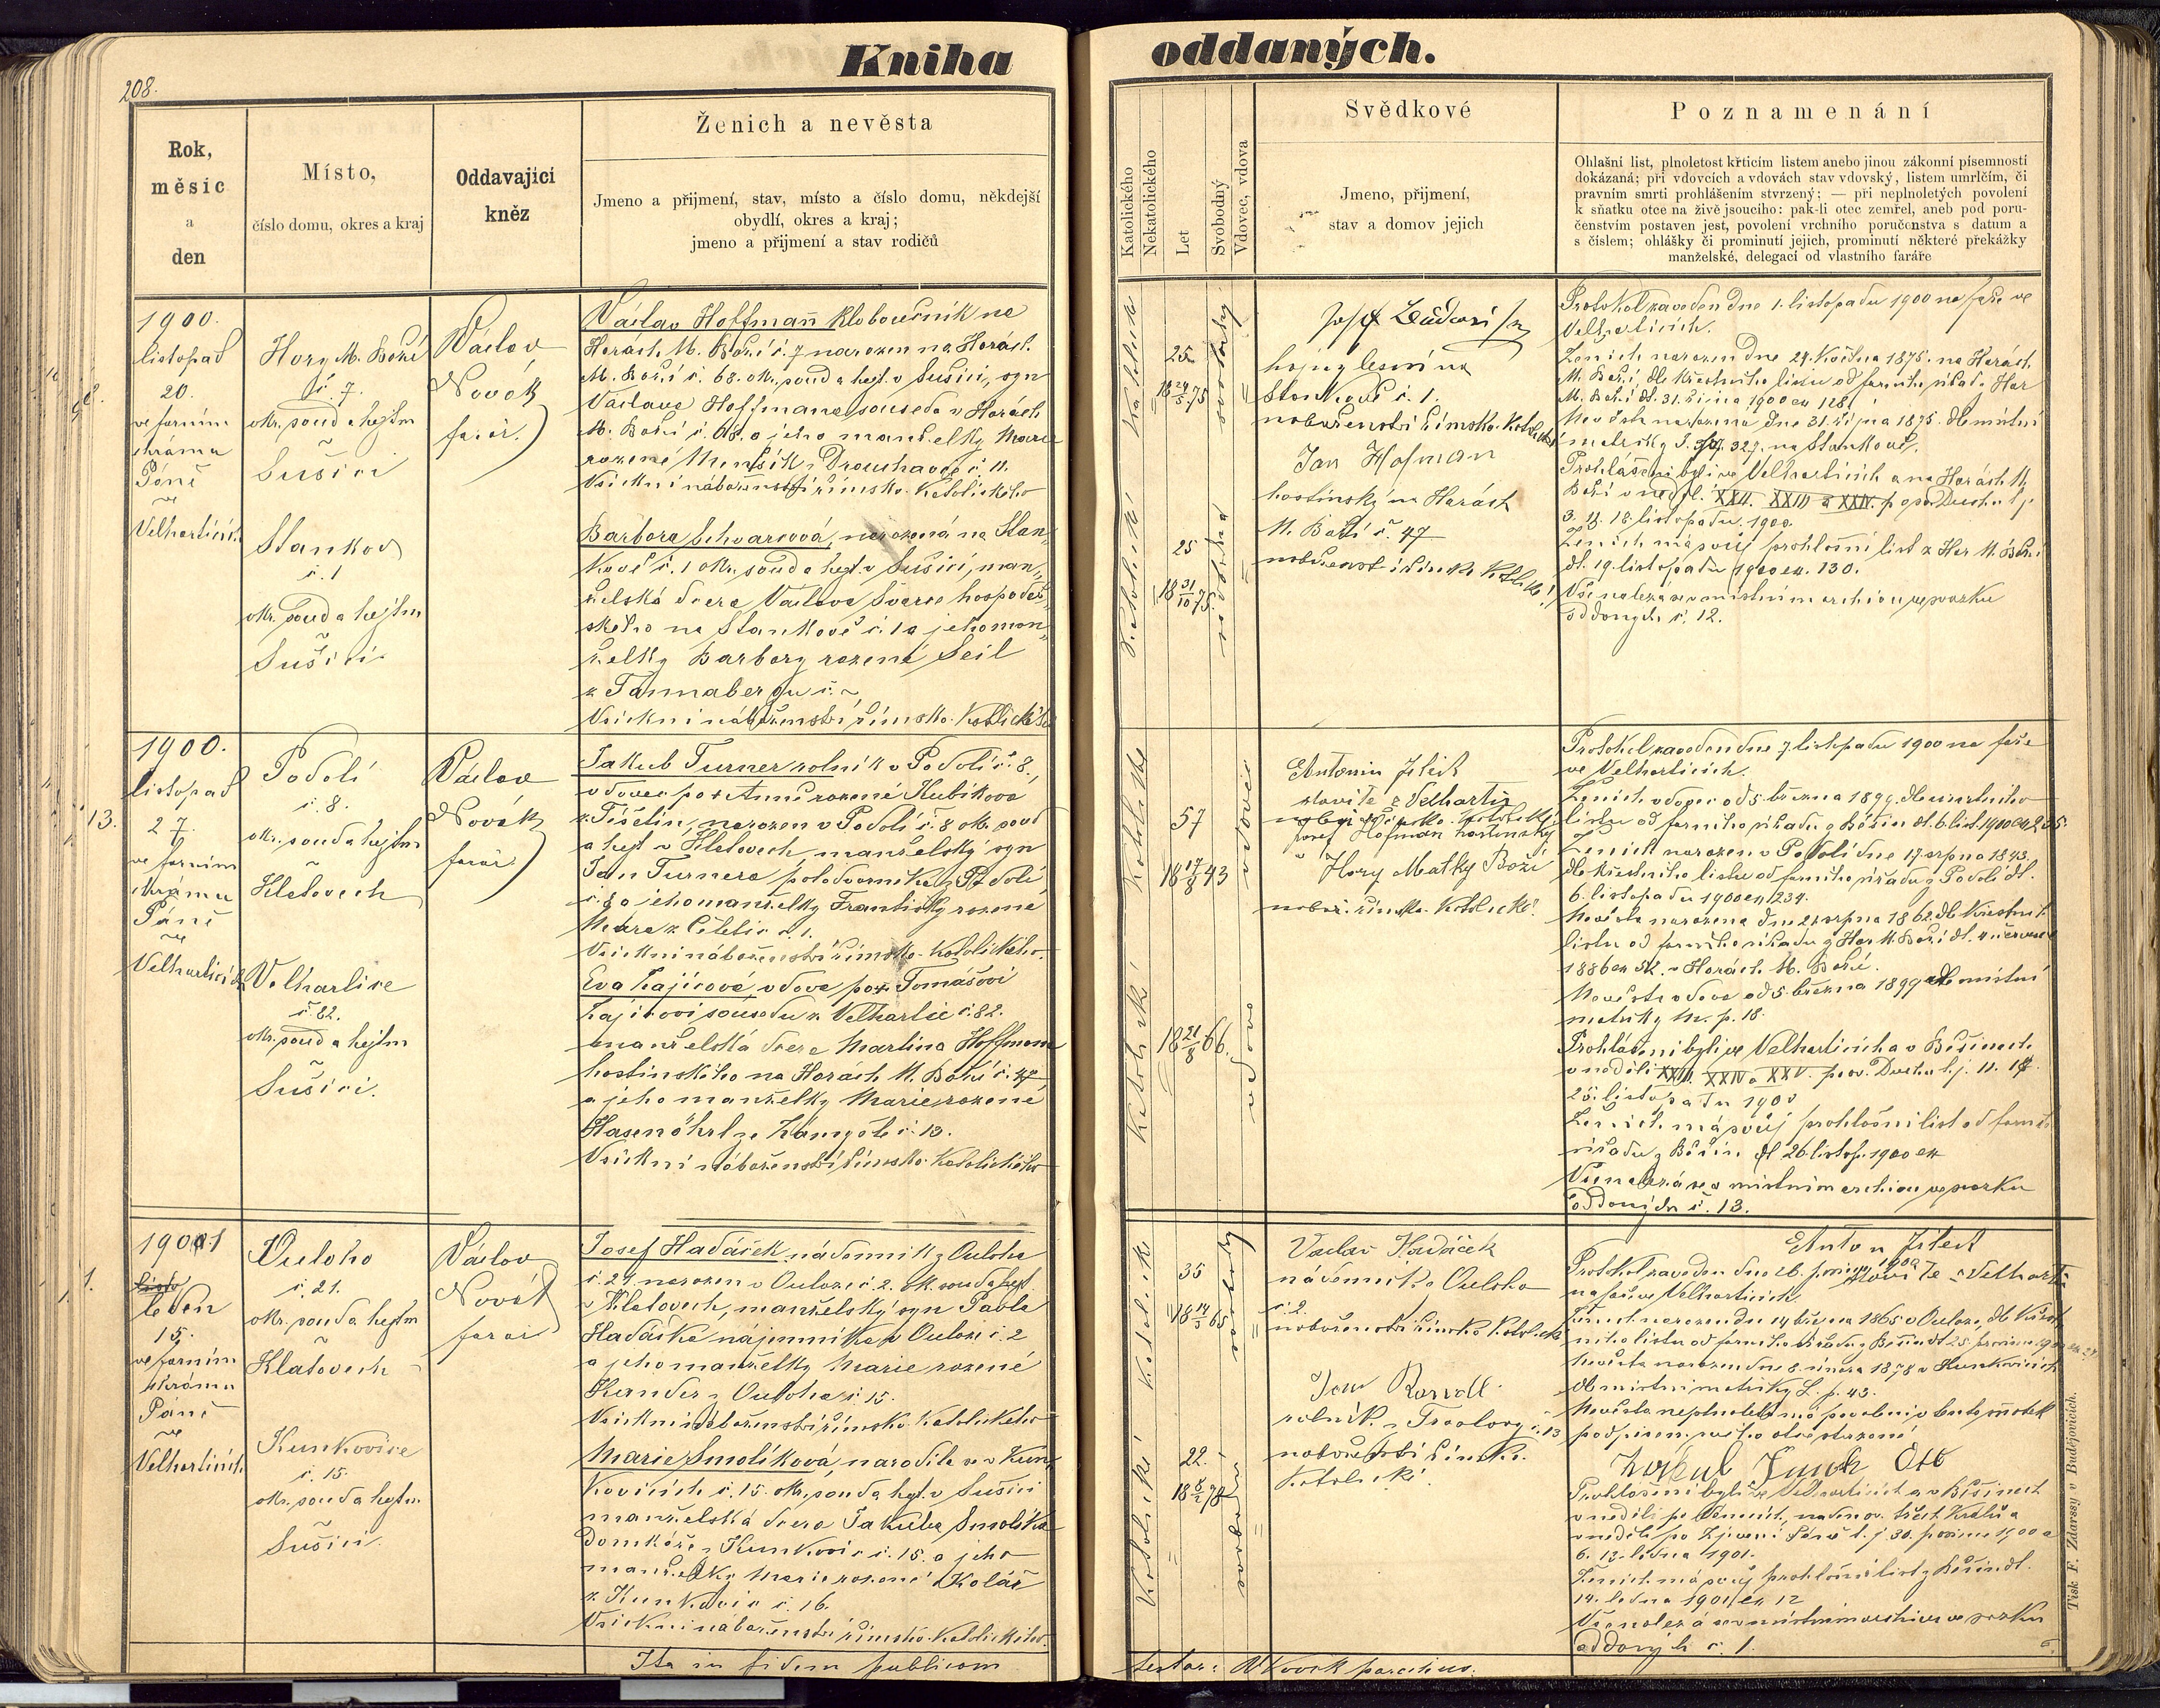 208.
Kniha oddaných.
Rok,
měsíc
a
den
Místo,
číslo domu, okres a kraj
Oddavající
kněz
Ženich a nevěsta
Jmeno a příjmení, stav, místo a číslo domu, někdejší
obydlí, okres a kraj;
jmeno a příjmení a stav rodičů
Katolického
Nekatolického
Let
Svobodný
Vdovec, vdova
Svědkové
Jmeno, příjmení,
stav a domov jejich
Poznamenání
Ohlašní list, plnoletost křticím listem anebo jinou zákonní písemností
dokázaná; při vdovcích a vdovách stav vdovský, listem umrlčím, či
pravním smrti prohlášením stvrzený; — při neplnoletých povolení
k sňatku otce na živě jsoucího: pak-li otec zemřel, aneb pod poru-
čenstvím postaven jest, povolení vrchního poručenstva s datum a
s číslem; ohlášky či prominutí jejich, prominutí některé překážky
manželské, delegací od vlastního faráře
1900.
listopad
20.
ve farním
chrámu
Páně
ve
Velharticích
Hory M. Boží
č. 7.
okr. soud a hejtm
Sušici
Stankov
č. 1
okr. soud a hejtm
Sušici
Václav
Novák
farář.
Václav Hoffmann kloboučník na
Horách M. Boží č. 7 narozen na Horách
M. Boží č. 68. okr. soud a hejt. v Sušici, syn
Václava Hoffmana souseda v Horách
M. Boží č. 68. a jeho manželky Marie
rozené Menšík z č. 11.
Všickni náboženství římsko-katolického
Barbora Schvarcová, narozená na Stan-
kově č. 1 okr. soud a hejt. v Sušici, man-
želská dcera Václava Švarce hospodář-
ského na Stankově č. 1 a jeho man-
želky Barbory rozené Seil
z Tannabergu č. ~
Všickni náboženství římsko-katolického
Katolické
25
18 24/5 75
svobodný
Katolické
25
18 31/10 75.
svobodná
Josef
hajný lesní na
Stankově č. 1.
náboženství římsko-katolické
Jan Hofman
hostinský na Horách
M. Boží č. 47
Protokol zaveden dne 1. listopadu 1900 na faře ve
Velharticích.
Ženich narozen dne 24. května 1875. na Horách
M. Boží, dle křestního listu od farního úřadu Hor
M. Boží dt. 31. října 1900 ex 128.
Nevěsta narozena dne 31. října 1875. dle místní
matriky 327. na Stankově.
Prohlášeni byli ve Velharticích a na Horách M.
Boží v neděli XXII. XXIII a XXIV. po sv. Duchu t. j.
18. listopadu. 1900.
Ženich má svůj prohlašní list z Hor M. Boží
dt. 19. listopadu 1900 ex. 130.
Vše nalézá se v místním archivu ve svazku
oddaných č. 12.
13.
1900.
listopad
27.
ve farním
chrámu
Páně
ve
Velharticích
Podolí
č. 8.
okr. soud a hejtm
v
Klatovech
Velhartice
č. 82.
okr. soud a hejtm
v
Sušici.
Václav
Novák
farář
Jakub Turner rolník v Podolí č. 8.,
vdovec po † Anně rozené Kubíkové
z Těšetin, narozen v Podolí č. 8 okr. soud
a hejt v Klatovech manželský syn
Jan Turnera, polodvorníka z Podolí
č. 8 a jeho manželky Františky rozené
č. 1.
Všickni náboženství římsko-katolického.
Eva Zajícová, vdova po † Tomášovi
Zajícovi sousedu z Velhartic č. 82.
manželská dcera Martina Hoffmana
hostinského na Horách M. Boží č. 47
a jeho manželky Marie rozené
Hasenöhrl ze č. 13.
Všickni náboženství římsko-katolického
Katolické
57
18 17/8 43
vdovec
Katolické
18 21/8 66.
vdova
Antonín Jílect
stavitel z Velhartic
Josef Hofman hostinský
z Hory Matky Boží
nábož. římsko-katolické.
Protokol zaveden dne 7 listopadu 1900 na faře
ve Velharticích.
Ženich vdovec od 5. března 1899. dle úmrtního
listu od farního úřadu z Běšin dt. 6. list. 1900 ex 235.
Ženich narozen v Podolí dne 17. srpna 1843.
dle křestního listu od farního úřadu z Podolí dt.
6. listopadu 1900 ex 234.
Nevěsta narozena dne 21 srpna 1862. dle křestního
listu od farního úřadu z Hor M. Boží dt. 4. července
1886 ex 52. v Horách M. Boží.
Nevěsta vdova od 5. března 1899 dle místní
matriky M. p. 18.
Prohlášeni byli ve Velharticích a v Běšinech
v neděli XXIII. XXIV a XXV. po sv. Duchu t. j. 11. 18.
25. listopadu 1900
Ženich má svůj prohlašní list od farního
úřadu z Běšin dt 26 listop. 1900 ex
Vše nalézá se v místním archivu ve svazku
oddaných č. 13.
1.
1901
leden
15.
ve farním
chrámu
Páně
ve
Velharticích
Ouloho
č. 21.
okr. soud a hejtm
v
Klatovech
Kunkovice
č. 15.
okr. soud a hejtm.
v
Sušici.
Václav
Novák
farář
Josef Hadáček nádenník z Ouloha
č. 21 narozen v Oulozi č. 2. ok. soud a hejt.
v Klatovech, manželský syn Pavla
Hadáčka nájemníka v Oulozi č. 2
a jeho manželky Marie rozené
z Ouloha č. 15.
Všickni náboženství římsko-katolického
Marie Smolíková, narodila se v Kun-
kovicích č. 15. okr. soud a hejt. v Sušici
manželská dcera Jakuba Smolíka
domkáře z Kunkovic č. 15. a jeho
manželky Marie rozené Kolář
z Kunkovic č. 16.
Všickni náboženství římsko-katolického.
Katolické
35
18 14/3 65
svobodný
Katolické
22.
18 8/2 78
svobodná
Václav Hadáček
nádenník z Ouloha
č. 2.
náboženství římsko-katolické
Jan
rolník z č. 13
náboženství římsko-
katolické.
Anton Jílect
stavitel z Velhartic
Protokol zaveden dne 26. prosince 1900
na faře ve Velharticích
Ženich narozen dne 14 března 1865 v Oulozi, dle křest-
ního listu od farního úřadu z Běšin dt 25. prosince 1900
Nevěsta narozena dne 8. února 1878 v Kunkovicích
dle místní matriky L. p. 43.
Nevěsta neplnoletá má povolení
Prohlášeni byli ve Velharticích a v Běšinech
v neděli po Vánocích, na den sv. tří Králů a
v neděli po Zjevení Páně t. j. 30. prosince 1900 a
6. 13. ledna 1901.
Ženich má svůj prohlašní list z Běšin dt.
14. ledna 1901 ex 12
Vše nalézá se v místním archivu ve svazku
oddaných č. 1.
Ita in fidem publicam
testor: Novák parochus.
Tisk F. Zdarssy v Budějovicích.